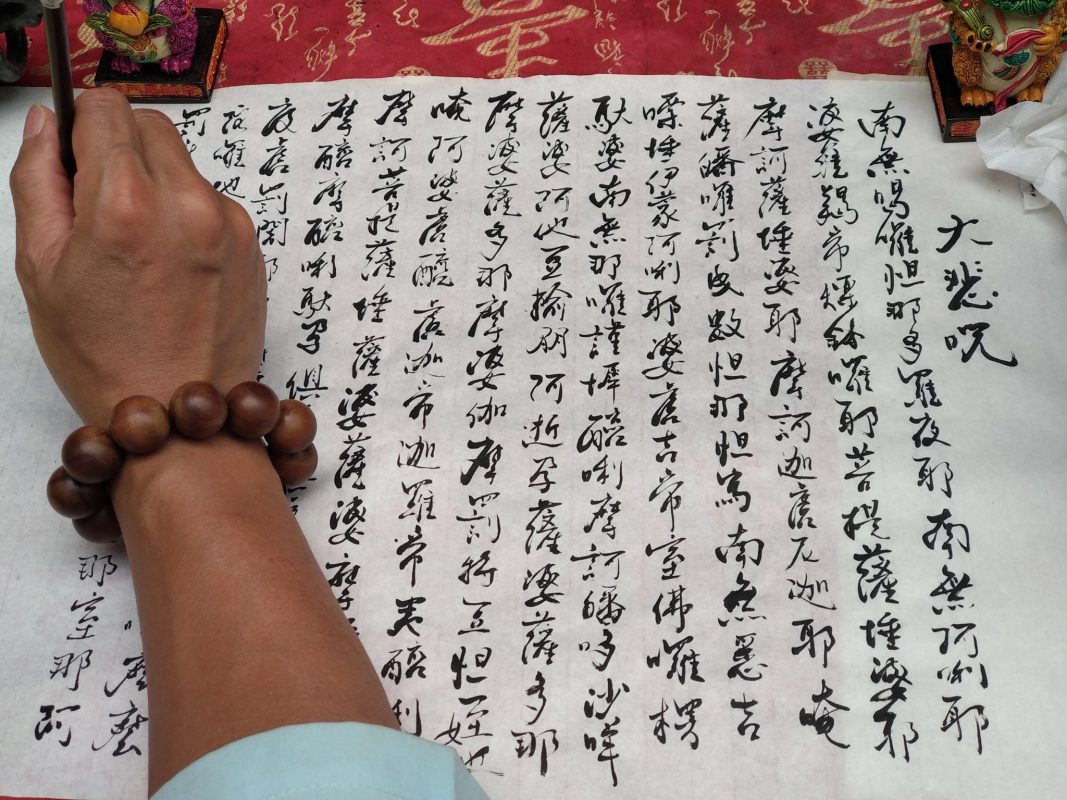 大悲咒
南無喝囉怛那多羅夜耶南無阿唎耶
婆羯帝爍鉢囉耶菩提薩埵婆耶
摩訶薩埵婆耶摩訶迦盧尼迦耶唵
薩皤囉罰曳數怛那怛寫南無悉吉
嘌埵伊蒙阿唎耶婆盧吉帝室佛囉楞
馱婆南無那囉謹墀醯唎摩訶皤哆沙咩
薩婆阿他豆輸朋阿逝孕薩婆薩多那
摩婆薩多那摩婆伽摩罰特豆怛姪他
唵阿婆盧醯盧迦帝迦羅帝夷醯唎
摩訶菩提薩埵薩婆薩婆摩
摩醯摩醯唎馱孕俱
度盧罰闍耶
陀囉他
罰
麼麼
那室那阿